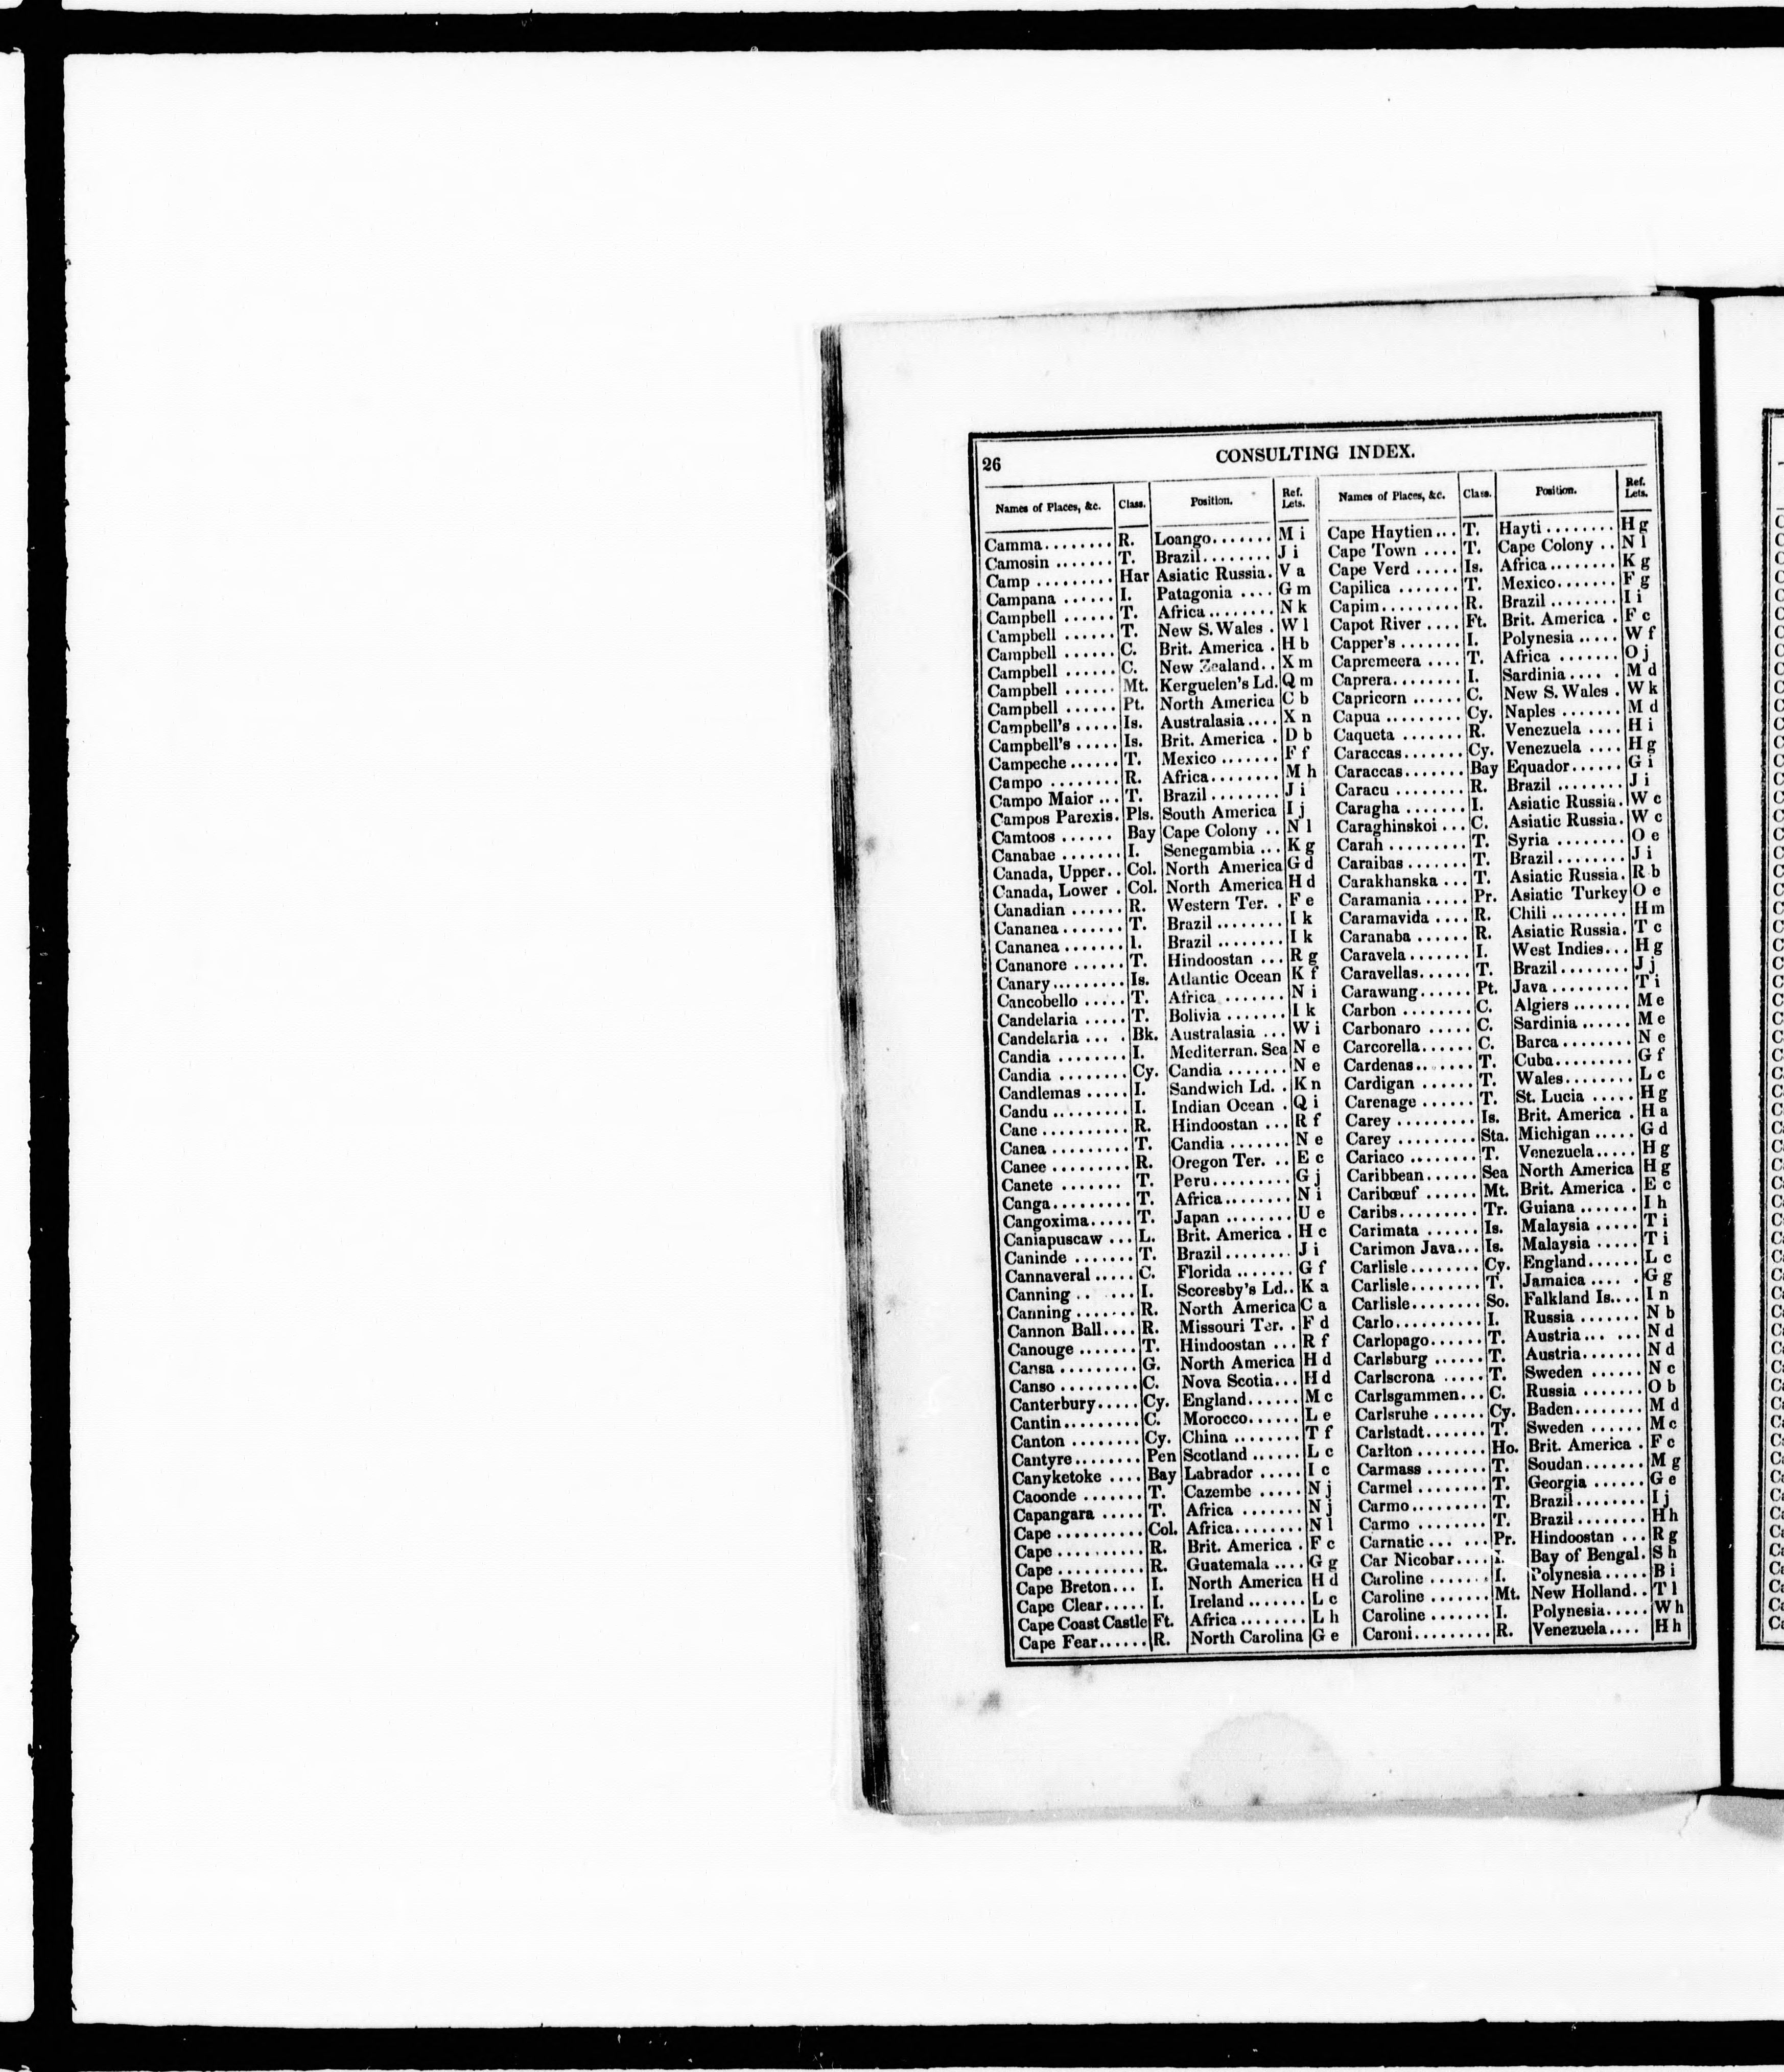 26
CONSULTING INDEX.
Names of Places, &c. Class. Position. Ref. Lets.
Camma........ R. Loango....... M i
Camosin ....... T. Brazil........ J i
Camp ......... Har Asiatic Russia. V a
Campana ...... I. Patagonia .... G m
Campbell ...... T. Africa ........ N k
Campbell ...... T. New S. Wales . W l
Campbell ...... C. Brit. America . H b
Campbell ...... C. New Zealand.. X m
Campbell ...... Mt. Kerguelen's Ld. Q m
Campbell ...... Pt. North America C b
Campbell's ..... Is. Australasia.... X n
Campbell's ..... Is. Brit. America . D b
Campeche ...... T. Mexico ....... F f
Campo ........ R. Africa........ M h
Campo Maior ... T. Brazil ........ J i
Campos Parexis. Pls. South America I j
Camtoos ...... Bay Cape Colony .. N l
Canabae ....... I. Senegambia ... K g
Canada, Upper.. Col. North America G d
Canada, Lower . Col. North America H d
Canadian ...... R. Western Ter. . F e
Cananea ....... T. Brazil ........ I k
Cananea ....... I. Brazil ........ I k
Cananore ...... T. Hindoostan ... R g
Canary......... Is. Atlantic Ocean K f
Cancobello ..... T. Africa ....... N i
Candelaria ..... T. Bolivia ....... I k
Candelaria ... . Bk. Australasia ... W i
Candia ........ I. Mediterran. Sea N e
Candia ........ Cy. Candia ....... N e
Candlemas ..... I. Sandwich Ld. . K n
Candu ......... I. Indian Ocean . Q i
Cane .......... R. Hindoostan ... R f
Canea ......... T. Candia ....... N e
Canee ......... R. Oregon Ter. .. E c
Canete ....... T. Peru......... G j
Canga......... T. Africa........ N i
Cangoxima..... T. Japan ........ U e
Caniapuscaw ... L. Brit. America . H c
Caninde ....... T. Brazil ........ J i
Cannaveral ..... C. Florida ....... G f
Canning .. ... I. Scoresby's Ld.. K a
Canning ....... R. North America C a
Cannon Ball.... R. Missouri Ter. . F d
Canouge ....... T. Hindoostan ... R f
Cansa ......... G. North America H d
Canso ......... C. Nova Scotia... H d
Canterbury..... Cy. England...... M c
Cantin......... C. Morocco...... L e
Canton ........ Cy. China ........ T f
Cantyre........ Pen Scotland ...... L c
Canyketoke .... Bay Labrador ..... I c
Caoonde ....... T. Cazembe ..... N j
Capangara ..... T. Africa ....... N j
Cape .......... Col. Africa........ N l
Cape .......... R. Brit. America . F c
Cape .......... R. Guatemala .... G g
Cape Breton... I. North America H d
Cape Clear..... I. Ireland ....... L c
Cape Coast Castle Ft. Africa ........ L h
Cape Fear...... R. North Carolina G e
Names of Places, &c. Class. Position. Ref. Lets.
Cape Haytien... T. Hayti ........ H g
Cape Town .... T. Cape Colony .. N l
Cape Verd ..... Is. Africa ........ K g
Capilica ....... T. Mexico....... F g
Capim......... R. Brazil ........ I i
Capot River .... Ft. Brit. America . F c
Capper's ....... I. Polynesia ..... W f
Capremeera .... T. Africa ....... O j
Caprera........ I. Sardinia.... . M d
Capricorn ...... C. New S. Wales . W k
Capua ......... Cy. Naples ....... M d
Caqueta ....... R. Venezuela .... H i
Caraccas....... Cy. Venezuela .... H g
Caraccas....... Bay Equador...... G i
Caracu ........ R. Brazil ........ J i
Caragha ....... I. Asiatic Russia. W c
Caraghinskoi ... C. Asiatic Russia. W c
Carah ......... T. Syria ........ O e
Caraibas ....... T. Brazil ........ J i
Carakhanska ... T. Asiatic Russia. R b
Caramania ..... Pr. Asiatic Turkey O e
Caramavida .... R. Chili ......... H m
Caranaba ...... R. Asiatic Russia. T c
Caravela ....... I. West Indies... H g
Caravellas...... T. Brazil ........ J j
Carawang...... Pt. Java ......... T i
Carbon ........ C. Algiers ....... M e
Carbonaro ..... C. Sardinia ...... M e
Carcorella...... C. Barca ........ N e
Cardenas....... T. Cuba......... G f
Cardigan ...... T. Wales........ L c
Carenage ...... T. St. Lucia ..... H g
Carey ......... Is. Brit. America . H a
Carey ......... Sta. Michigan ..... G d
Cariaco ........ T. Venezuela..... H g
Caribbean...... Sea North America H g
Caribœuf ...... Mt. Brit. America . E c
Caribs......... Tr. Guiana ....... I h
Carimata ...... Is. Malaysia ..... T i
Carimon Java... Is. Malaysia ..... T i
Carlisle........ Cy. England...... L c
Carlisle........ T. Jamaica .... . G g
Carlisle........ So. Falkland Is.... I n
Carlo.......... I. Russia ....... N b
Carlopago...... T. Austria... ... N d
Carlsburg ...... T. Austria....... N d
Carlscrona ..... T. Sweden ...... N c
Carlsgammen... C. Russia ....... O b
Carlsruhe ...... Cy. Baden........ M d
Carlstadt....... T. Sweden ...... M c
Carlton ........ Ho. Brit. America . F c
Carmass ....... T. Soudan....... M g
Carmel ........ T. Georgia ...... G e
Carmo......... T. Brazil ........ I j
Carmo ........ T. Brazil ........ H h
Carnatic ... ... Pr. Hindoostan ... R g
Car Nicobar.... I. Bay of Bengal. S h
Caroline ....... I. Polynesia ..... B i
Caroline ....... Mt. New Holland.. T l
Caroline ....... I. Polynesia..... W h
Caroni......... R. Venezuela.... H h